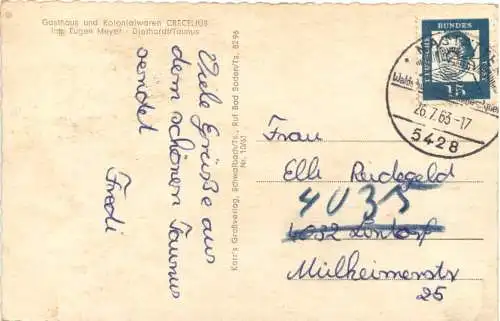 Gasthaus und Kolonialwaren CRECELIUS
Inh. Eugen Meyer - Diethardt/Taunus
Viele Grüße aus
dem schönen Taunus
sendet
Fredi
Karr's Großverlag, Schwalbach/Ts., Ruf Bad Soden/Ts. 8296
Nr. 10/61
DEUTSCHE
BUNDES
15
26.7.63-17
5428
Frau
Elli
4035
4032 Lintorf
Mülheimerstr
25